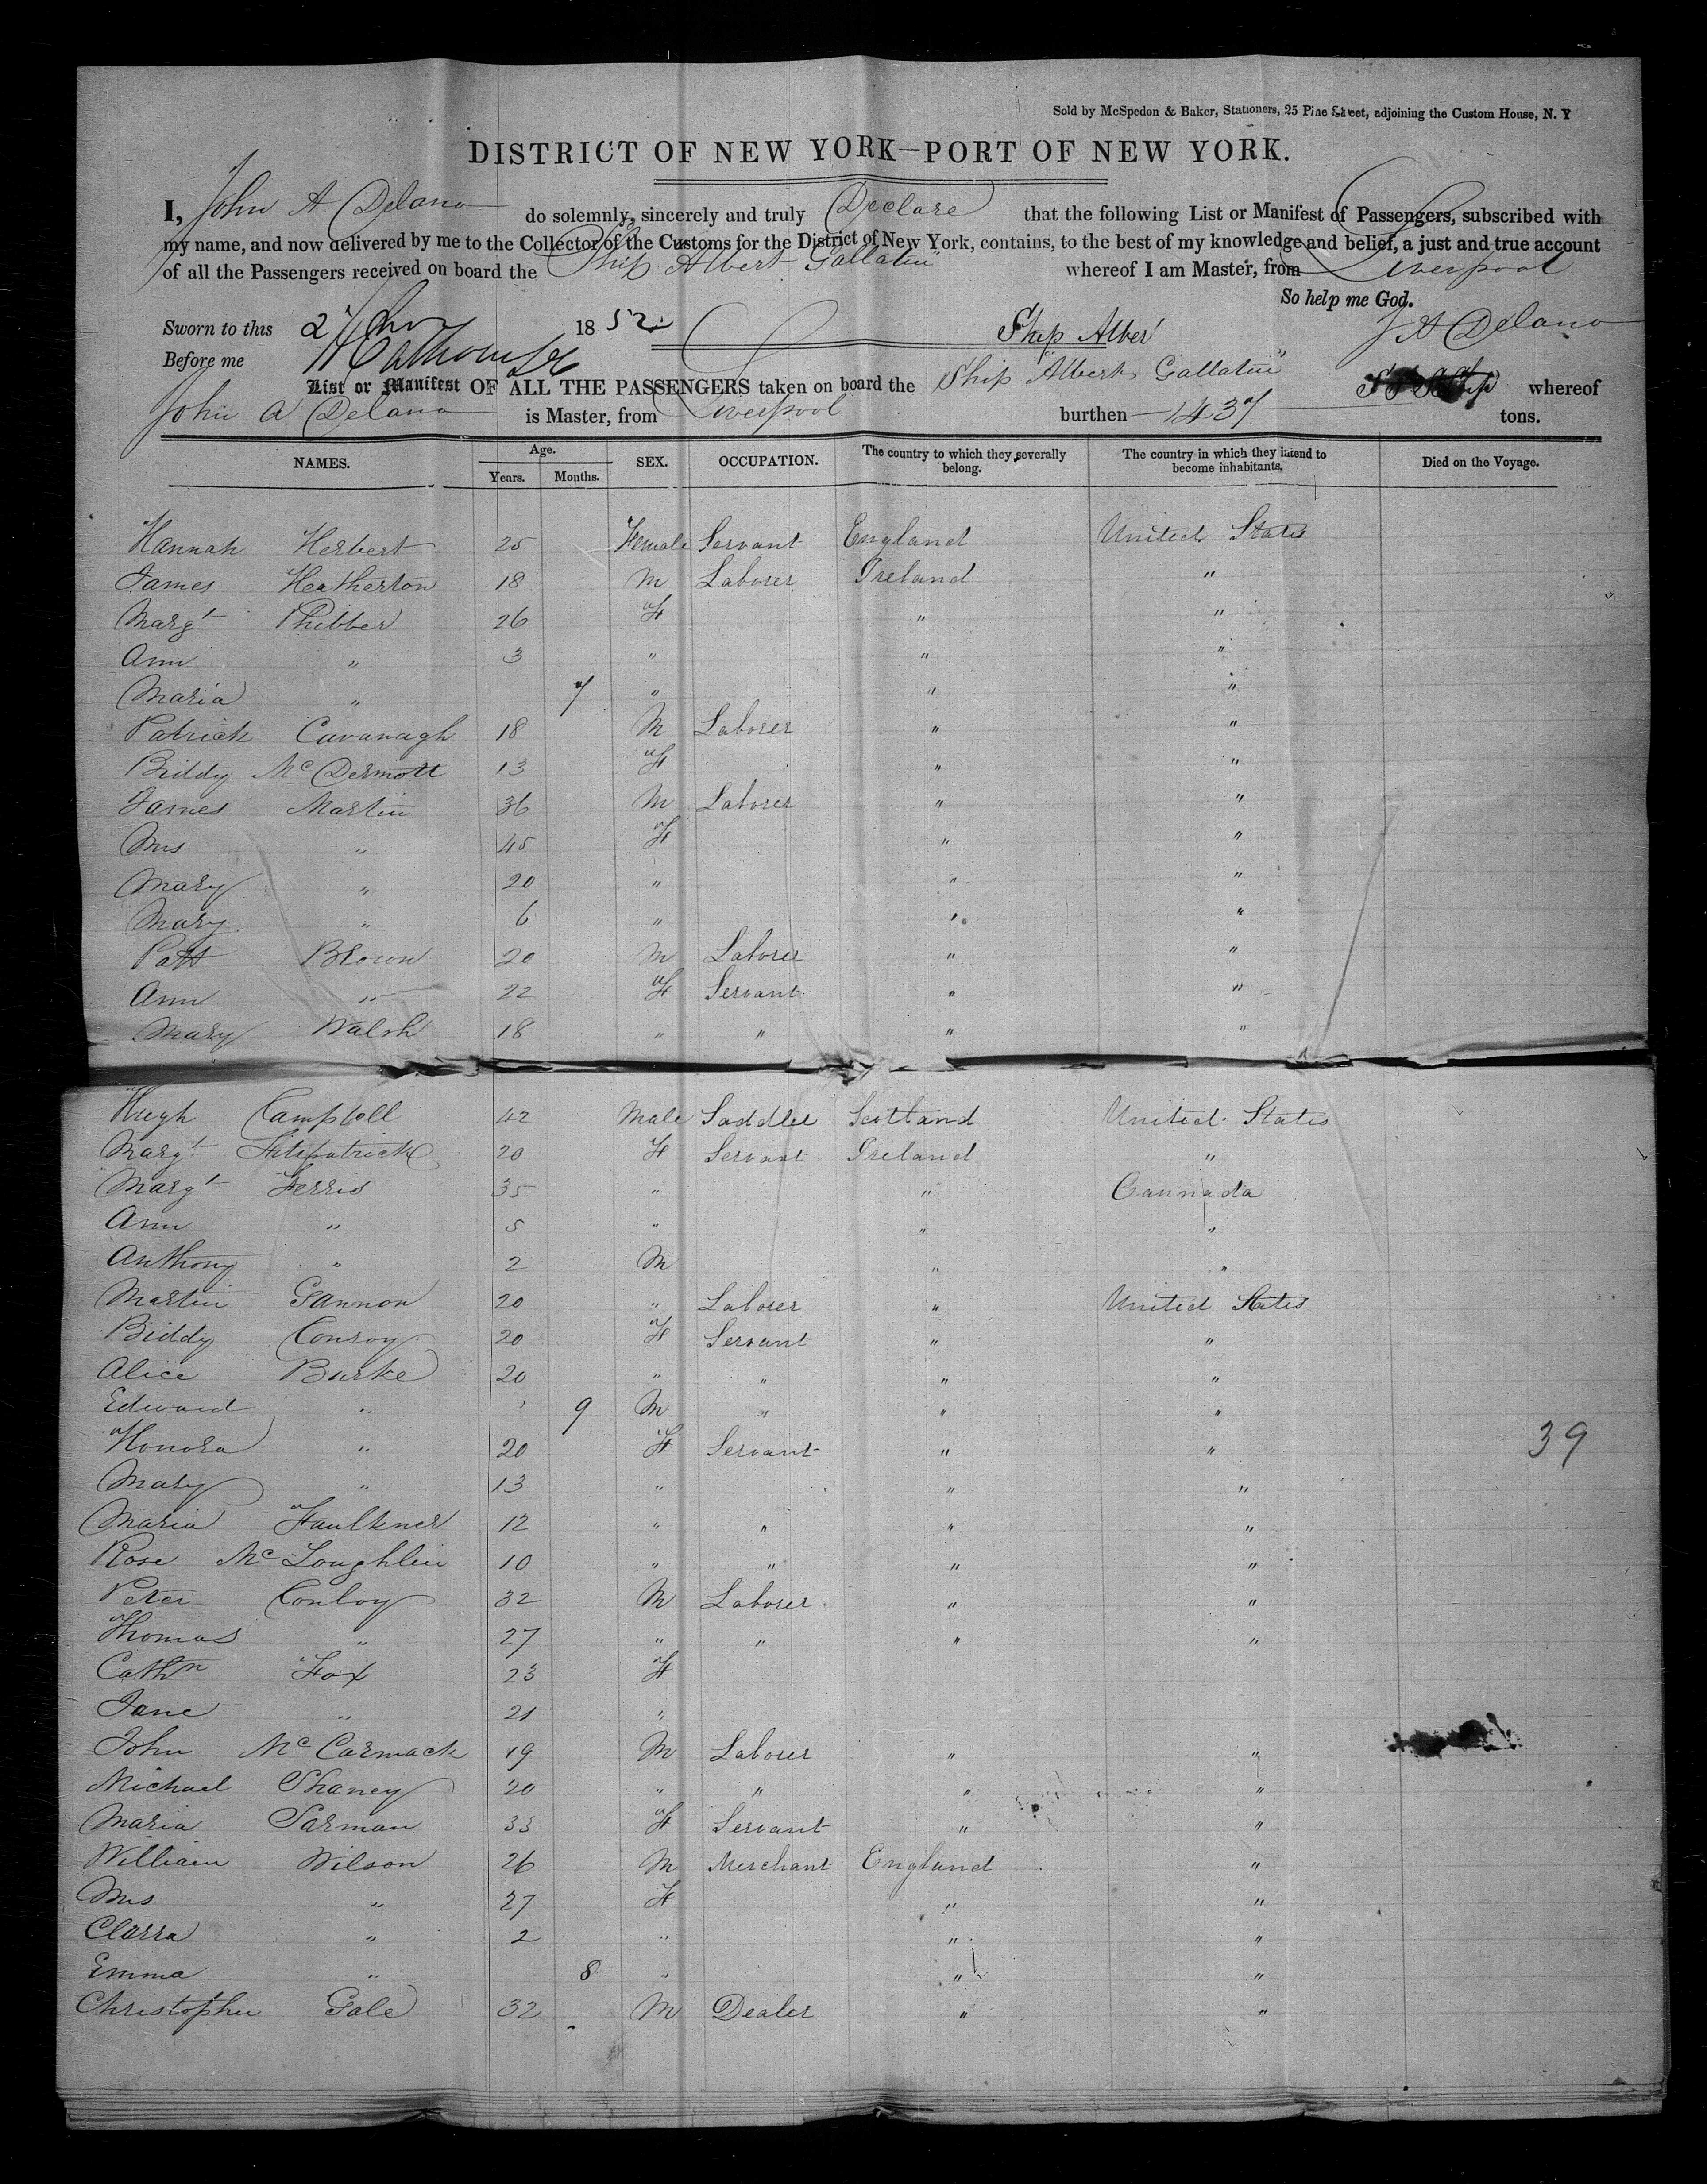 Sold by McSpedon & Baker, Stationers, 25 Pine Street, adjoining the Custom House, N. Y
DISTRICT OF NEW YORK—PORT OF NEW YORK.
I, John A Delano do solemnly, sincerely and truly Declare that the following List or Manifest of Passengers, subscribed with
my name, and now delivered by me to the Collector of the Customs for the District of New York, contains, to the best of my knowledge and belief, a just and true account
of all the Passengers received on board the Ship Albert Gallatin whereof I am Master, from Liverpool
So help me God.
Sworn to this 27 Nov 1852 Ship Alber J A Delano
Before me
List or Manifest OF ALL THE PASSENGERS taken on board the Ship "Albert Gallatin" whereof
John A Delano is Master, from Liverpool burthen 1437 tons.
NAMES. Age. Years. Months. SEX. OCCUPATION. The country to which they severally belong. The country in which they intend to become inhabitants. Died on the Voyage.
Hannah Herbert 25 Female Servant England United States
James Heatherton 18 M Laborer Ireland "
Margt Phibber 26 F " "
Ann " 3 " " "
Maria " 7 " " "
Patrick Cavanagh 18 M Laborer " "
Biddy McDermott 13 F " "
James Martin 36 M Laborer " "
Mrs " 45 F " "
Mary " 20 " " "
Mary " 6 " " "
Patt Brown 20 M Laborer " "
Ann " 22 F Servant " "
Mary Walsh 18 " " " "
Hugh Campbell 42 Male Saddler Scotland United States
Margt Fitzpatrick 20 F Servant Ireland "
Margt Ferris 35 " " Cannada
Ann " 5 " " "
Anthony " 2 M " "
Martin Gannon 20 " Laborer " United States
Biddy Conroy 20 F Servant " "
Alice Burke 20 " " " "
Edward " 9 M " " "
Honora " 20 F Servant " " 39
Mary " 13 " " "
Maria Faulkner 12 " " " "
Rose McLoughlin 10 " " " "
Peter Conloy 32 M Laborer " "
Thomas " 27 " " " "
Cathn Fox 23 F
Jane " 21 "
John McCormack 19 M Laborer " "
Michael Shaney 20 " " " "
Maria Sarman 33 F Servant " "
William Wilson 26 M Merchant England "
Mrs " 27 F " "
Clarra " 2 " " "
Emma " 8 " " "
Christopher Gale 32 M Dealer " "